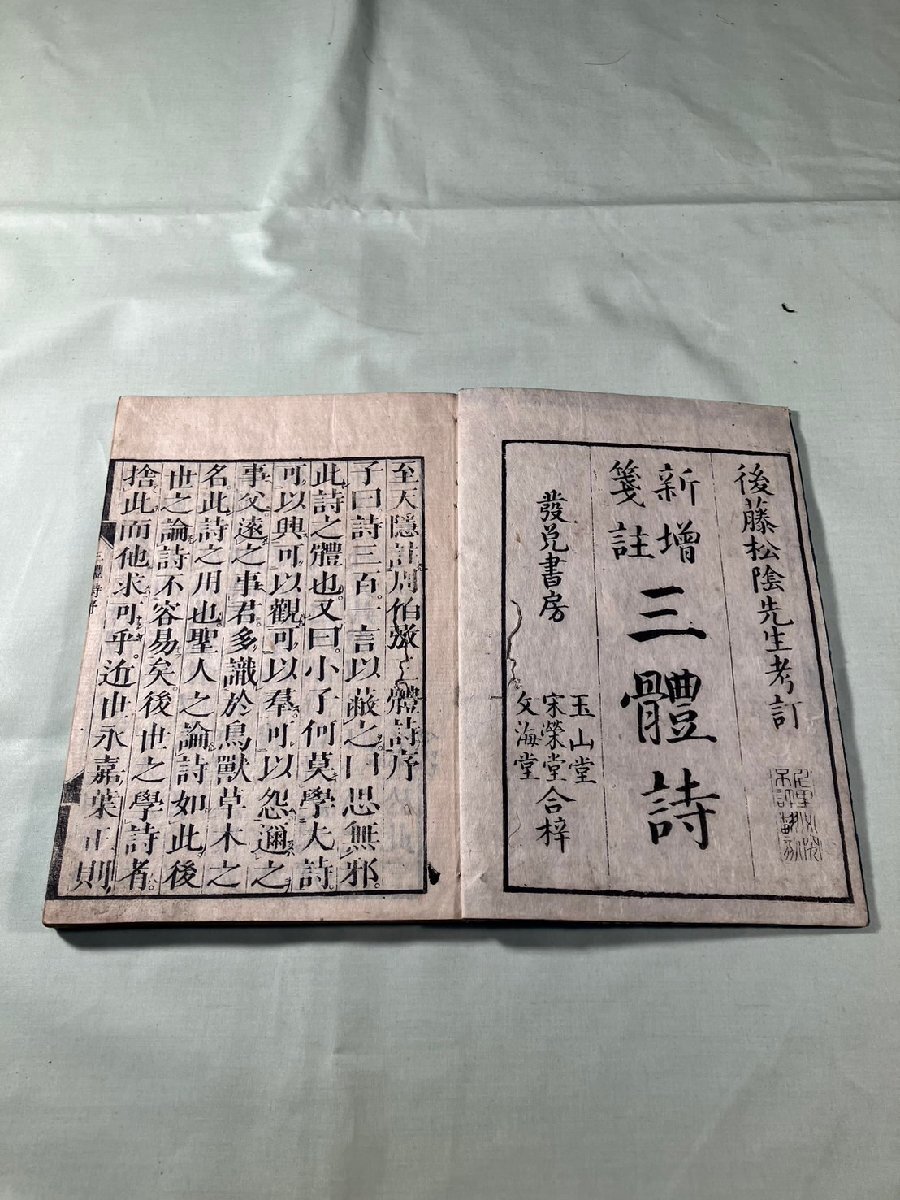 後藤松陰先生考訂
新增
箋註
三體詩
發兌書房
玉山堂
宋榮堂
文海堂
合梓
至天隱註周伯弜三體詩序
子曰詩三百一言以蔽之曰思無邪
此詩之體也又曰小子何莫學夫詩
可以興可以觀可以羣可以怨邇之
事父遠之事君多識於鳥獸草木之
名此詩之用也聖人之論詩如此後
世之論詩不容易矣後世之學詩者
捨此而他求可乎近世永嘉葉正則